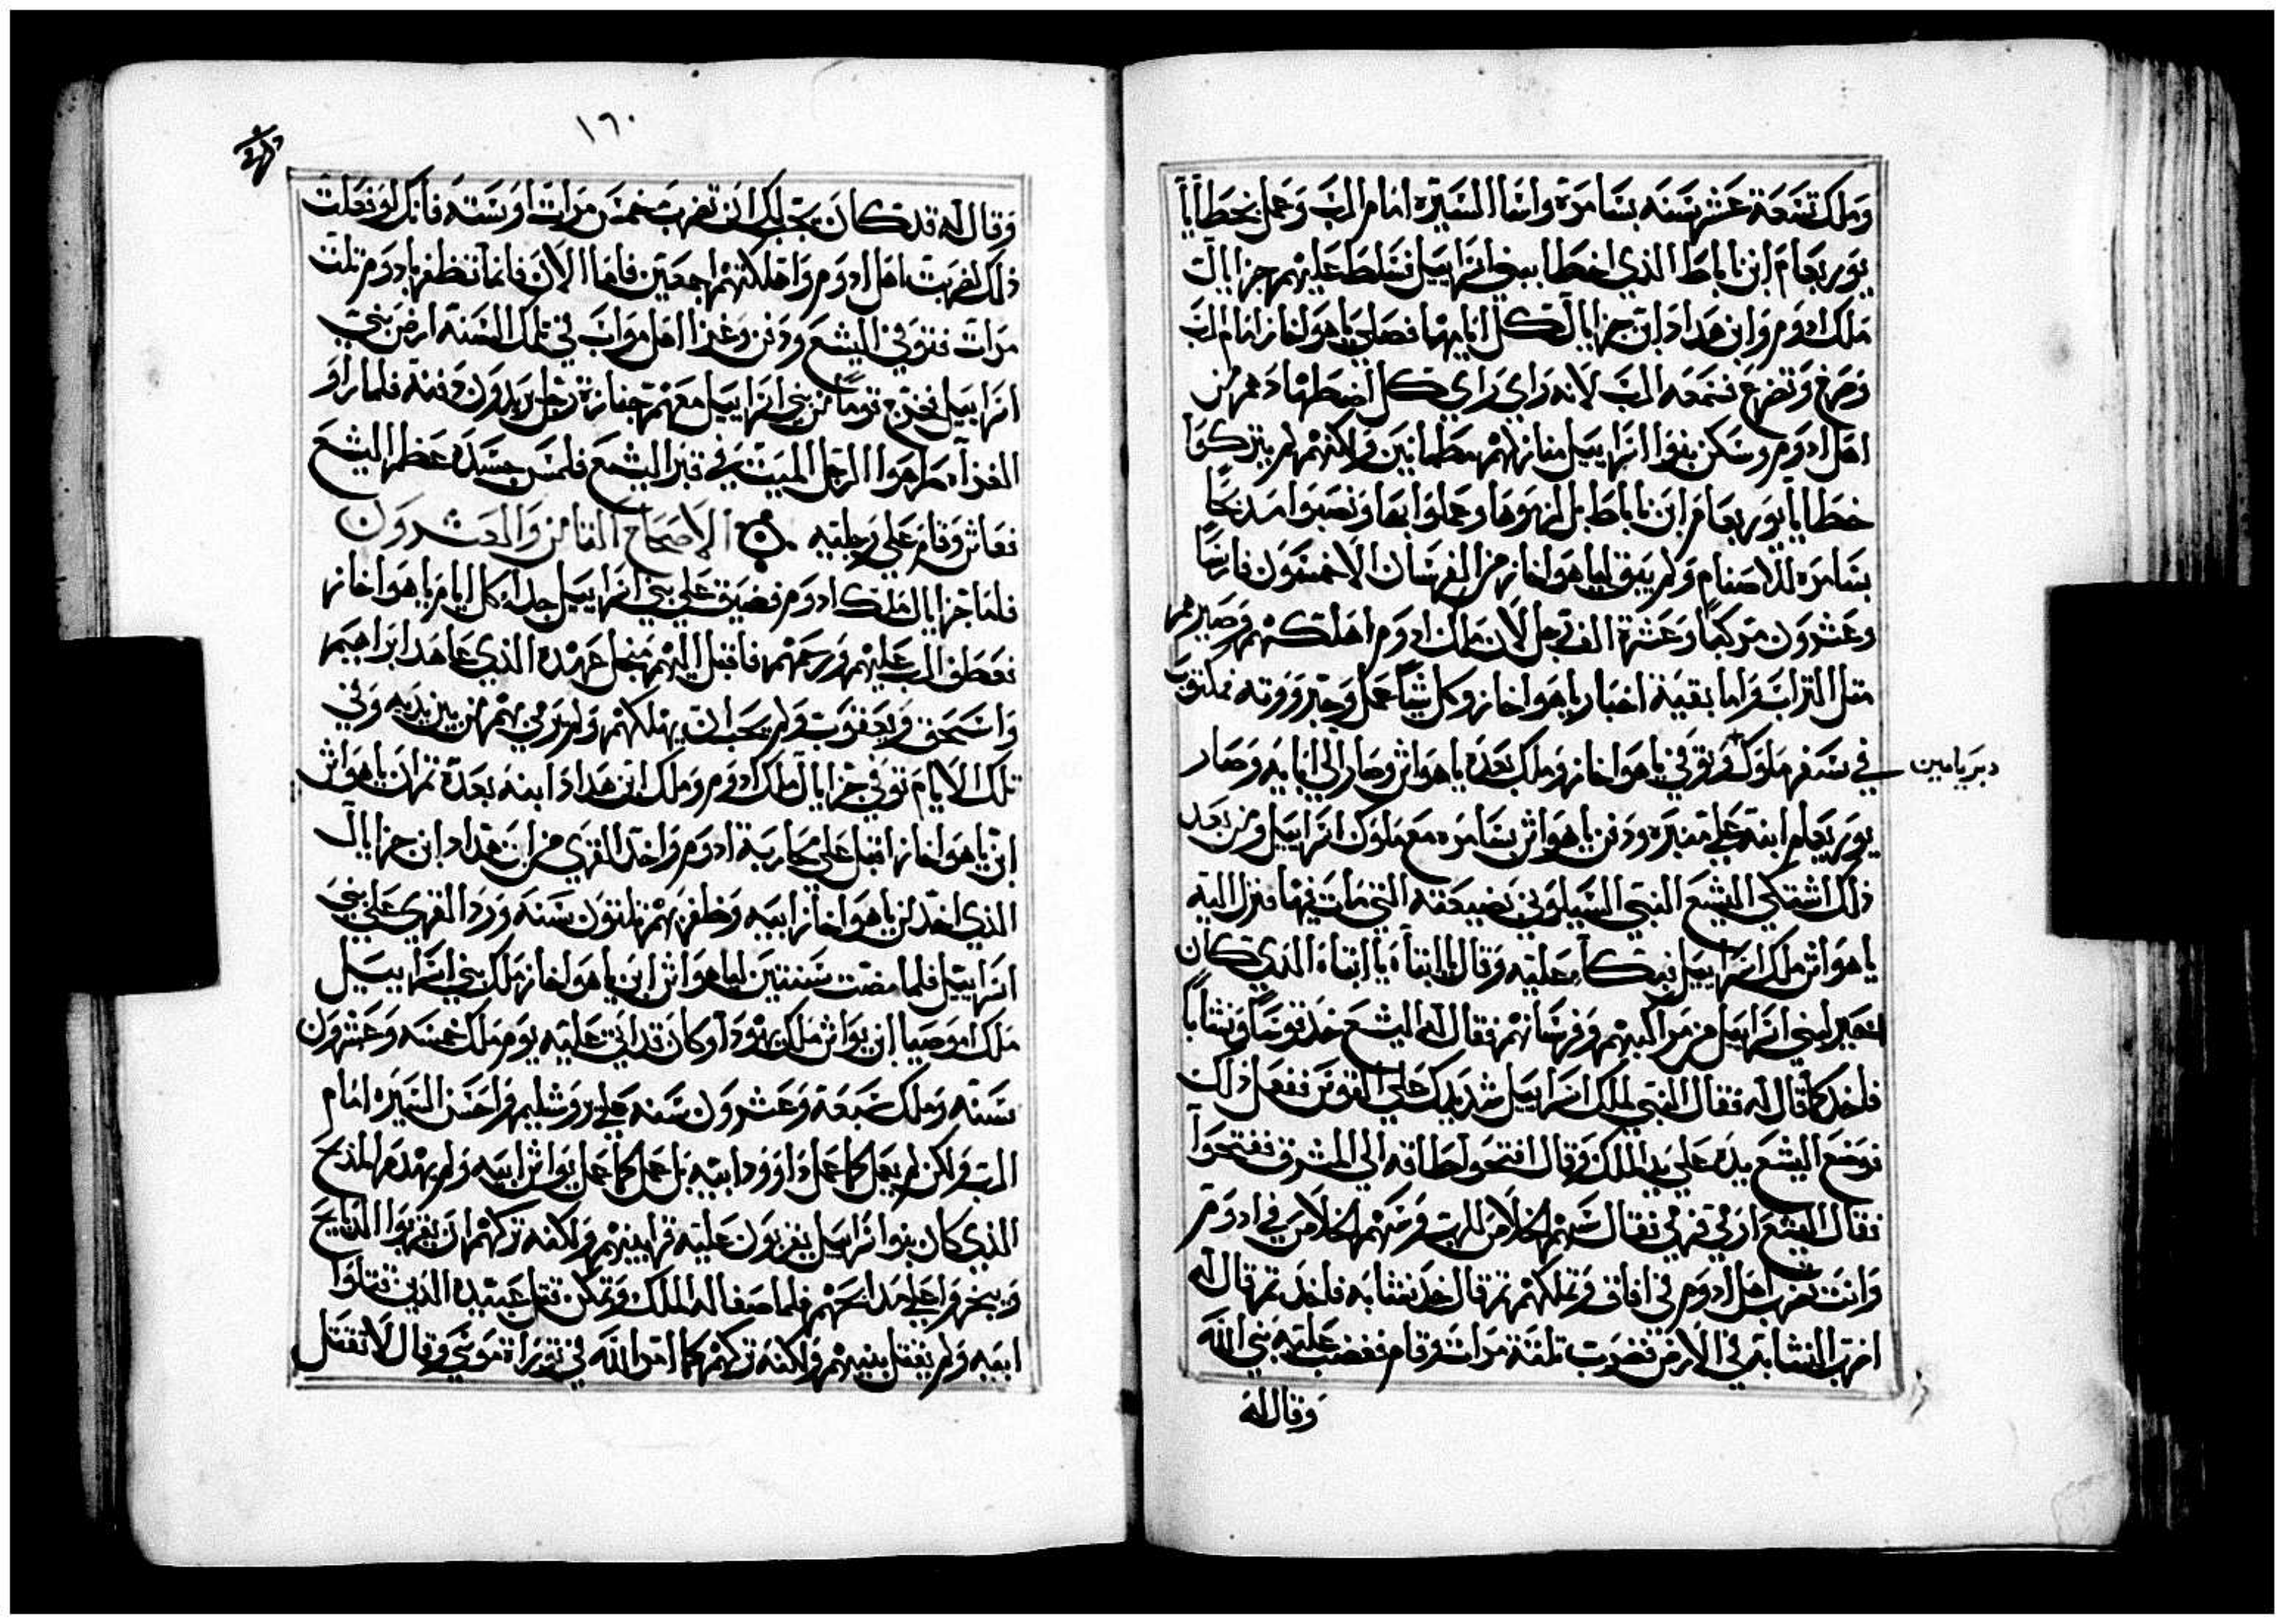 وملك تسعة عشر سنه بسامرة واسا السيرة امام الرب وعمل بخطايا
يوربعام ابن ناباط الذي اخطا ببني اسراييل فسلط عليهم حزايال
ملك ادوم وابن هداد ابن حزايال كل ايامهما فصلى ياهواخاز امام الرب
وصرخ وتضرع فسمعه الرب لانه راى كل اضطهادهم من
اهل ادوم وسكن بنوا اسراييل منازلهم مطمانيين ولاكنهم لم يتركوا
خطايا يوربعام ابن ناباط بل لزموها وعملوا بها ونصبوا مدبحًا
بسامره للاصنام ولم يبق لياهواخاز من الفرسان الا خمسون فارسًا
وعشرون مركبًا وعشرة الف رجل لان ملك ادوم اهلكهم وصيرهم
متل التراب واما بقية اخبار ياهواخاز وكل شيًا عمل وجبروته فمكتوب
دبريامين
في سفر ملوك وتوفي ياهواخاز وملك بعده ياهواش وصار الى ابايه وصار
يوربعام ابنه على منبره ودفن ياهواش بسامره مع ملوك اسراييل ومن بعد
ذلك اشتكي اليشع النبي السيلوني بضيعته التي مات فيها فنزل اليه
ياهواش ملك اسراييل فبكا عليه وقال يا ابتاه يا ابتاه الذي كان
اخير لبني اسراييل من مراكبهم وفرسانهم فقال له اليشع خد قوسًا ونشابًا
فاخد كما قال له فقال النبي لملك اسراييل شد يدك على القوس ففعل ذلك
فوضع اليشع يده على يد الملك وقال افتحوا طاقه الى المشرق ففتحوا
فقال اليشع ارمي فرمي فقال سهم الخلاص للرب وسهم الخلاص في ادوم
وانت تضرب اهل ادوم في افاق وتملكهم تم قال خد نشابه فاخد تم قال له
اضرب النشابه في الارض فضرب تلتة مرات وقام فغضب عليه نبي الله
وقال له
١٦٠
وقال له قد كان يجب لك ان تضرب خمس مرات او سته فانك لو فعلت
ذلك لضربت اهل ادوم واهلكتهم اجمعين فاما الان فانما تظفر بادوم تلت
مرات فتوفي اليشع ودفن وغزا اهل مواب في تلك السنة ارض بني
اسراييل فخرج قومًا من بني اسراييل معهم جنازة رجل يريدون دفنه فلما راو
الغزاه طرحوا الرجل الميت في قبر اليشع فلمس جسده عظم اليشع
فعاش وقام على رجليه الاصحاح التامن والعشرون
فلما حزايال ملك ادوم فضيق على بني اسراييل جدا كل ايام ياهواخاز
فعطف الرب عليهم ورحمهم فاقبل اليهم من اجل عهده الذي عاهد ابراهيم
واسحق ويعقوب ولم يحب ان يهلكهم ولم يرمي بهم من بين يديه وفي
تلك الايام توفي حزايال ملك ادوم وملك ابن هداد ابنه بعده تم ان ياهواش
ابن ياهواخاز اقبل على محاربة ادوم واخد القرى من ابن هداد ابن حزايال
الذي اخد من ياهواخاز ابيه وظفر بهم تلتون سنه ورد القرى على بني
اسراييل فلما مضت سنتين لياهواش ابن ياهواخاز ملك بني اسراييل
ملك اموصيا ابن يواش ملك يهودا وكان قد اتى عليه يوم ملك خمسه وعشرون
سنه وملك تسعة وعشرون سنه على يروشليم واحسن السيره امام
الرب ولكن لم يعمل كما عمل داوود ابيه بل عمل كما عمل يواش ابيه ولم يهدم المذبح
الذي كان بنوا اسراييل يقربون عليه قرابينهم ولاكنه تركهم ان يقربوا الدبايح
ويبخروا على مدابحهم فلما صفا له الملك وتمكن قتل عبيده الذين قتلوا
ابيه ولم يقتل بنيهم ولاكنه تركهم كما امر الله في توراة موسي وقال لا تقتل